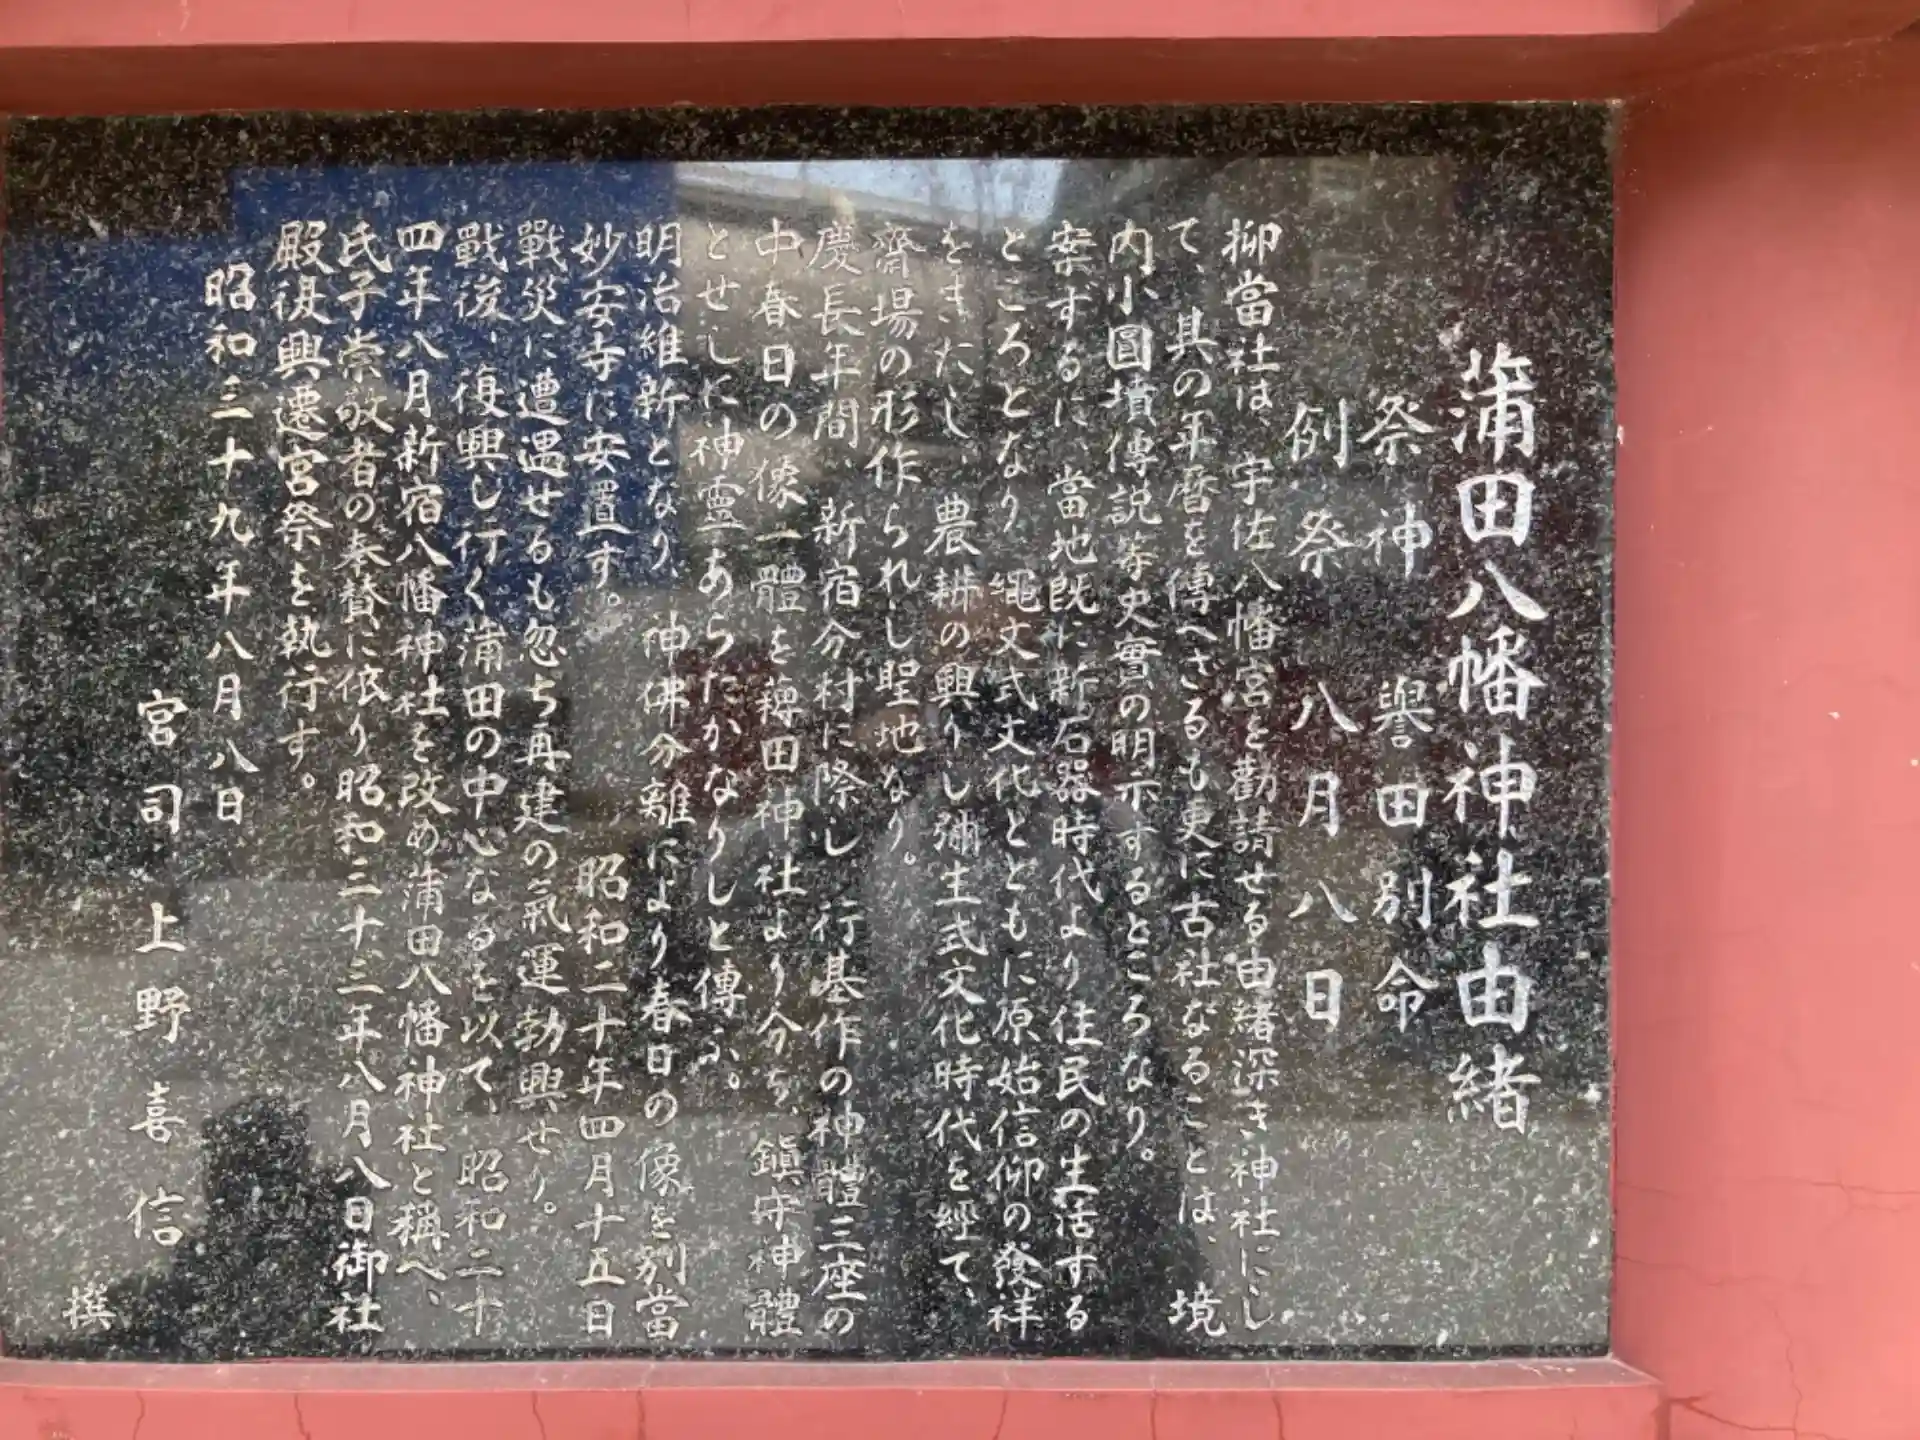 蒲田八幡神社由緒
祭神 譽田別命
例祭 八月八日
抑當社は、宇佐八幡宮を勸請せる由緒深き神社にし
て、其の年暦を傳へざるも更に古社なることは、境
内小圓墳傳説等史實の明示するところなり。
案ずるに、當地既に新石器時代より住民の生活する
ところとなり縄文式文化とともに原始信仰の發祥
をきたし、農耕の興りし彌生式文化時代を經て、
齋場の形作られし聖地なり。
慶長年間、新宿分村に際し、行基作の神體三座の
中春日の像一體を薭田神社より分ち、鎭守神體
とせしに神靈あらたかなりしと傳ふ。
明治維新となり、神佛分離により春日の像を別當
妙安寺に安置す。 昭和二十年四月十五日
戰災に遭遇せるも忽ち再建の氣運勃興せり。
戰後、復興し行く蒲田の中心なるを以て、昭和二十
四年八月新宿八幡神社を改め蒲田八幡神社と稱へ、
氏子崇敬者の奉賛に依り昭和三十三年八月八日御社
殿復興遷宮祭を執行す。
昭和三十九年八月八日
宮司 上野喜信
撰